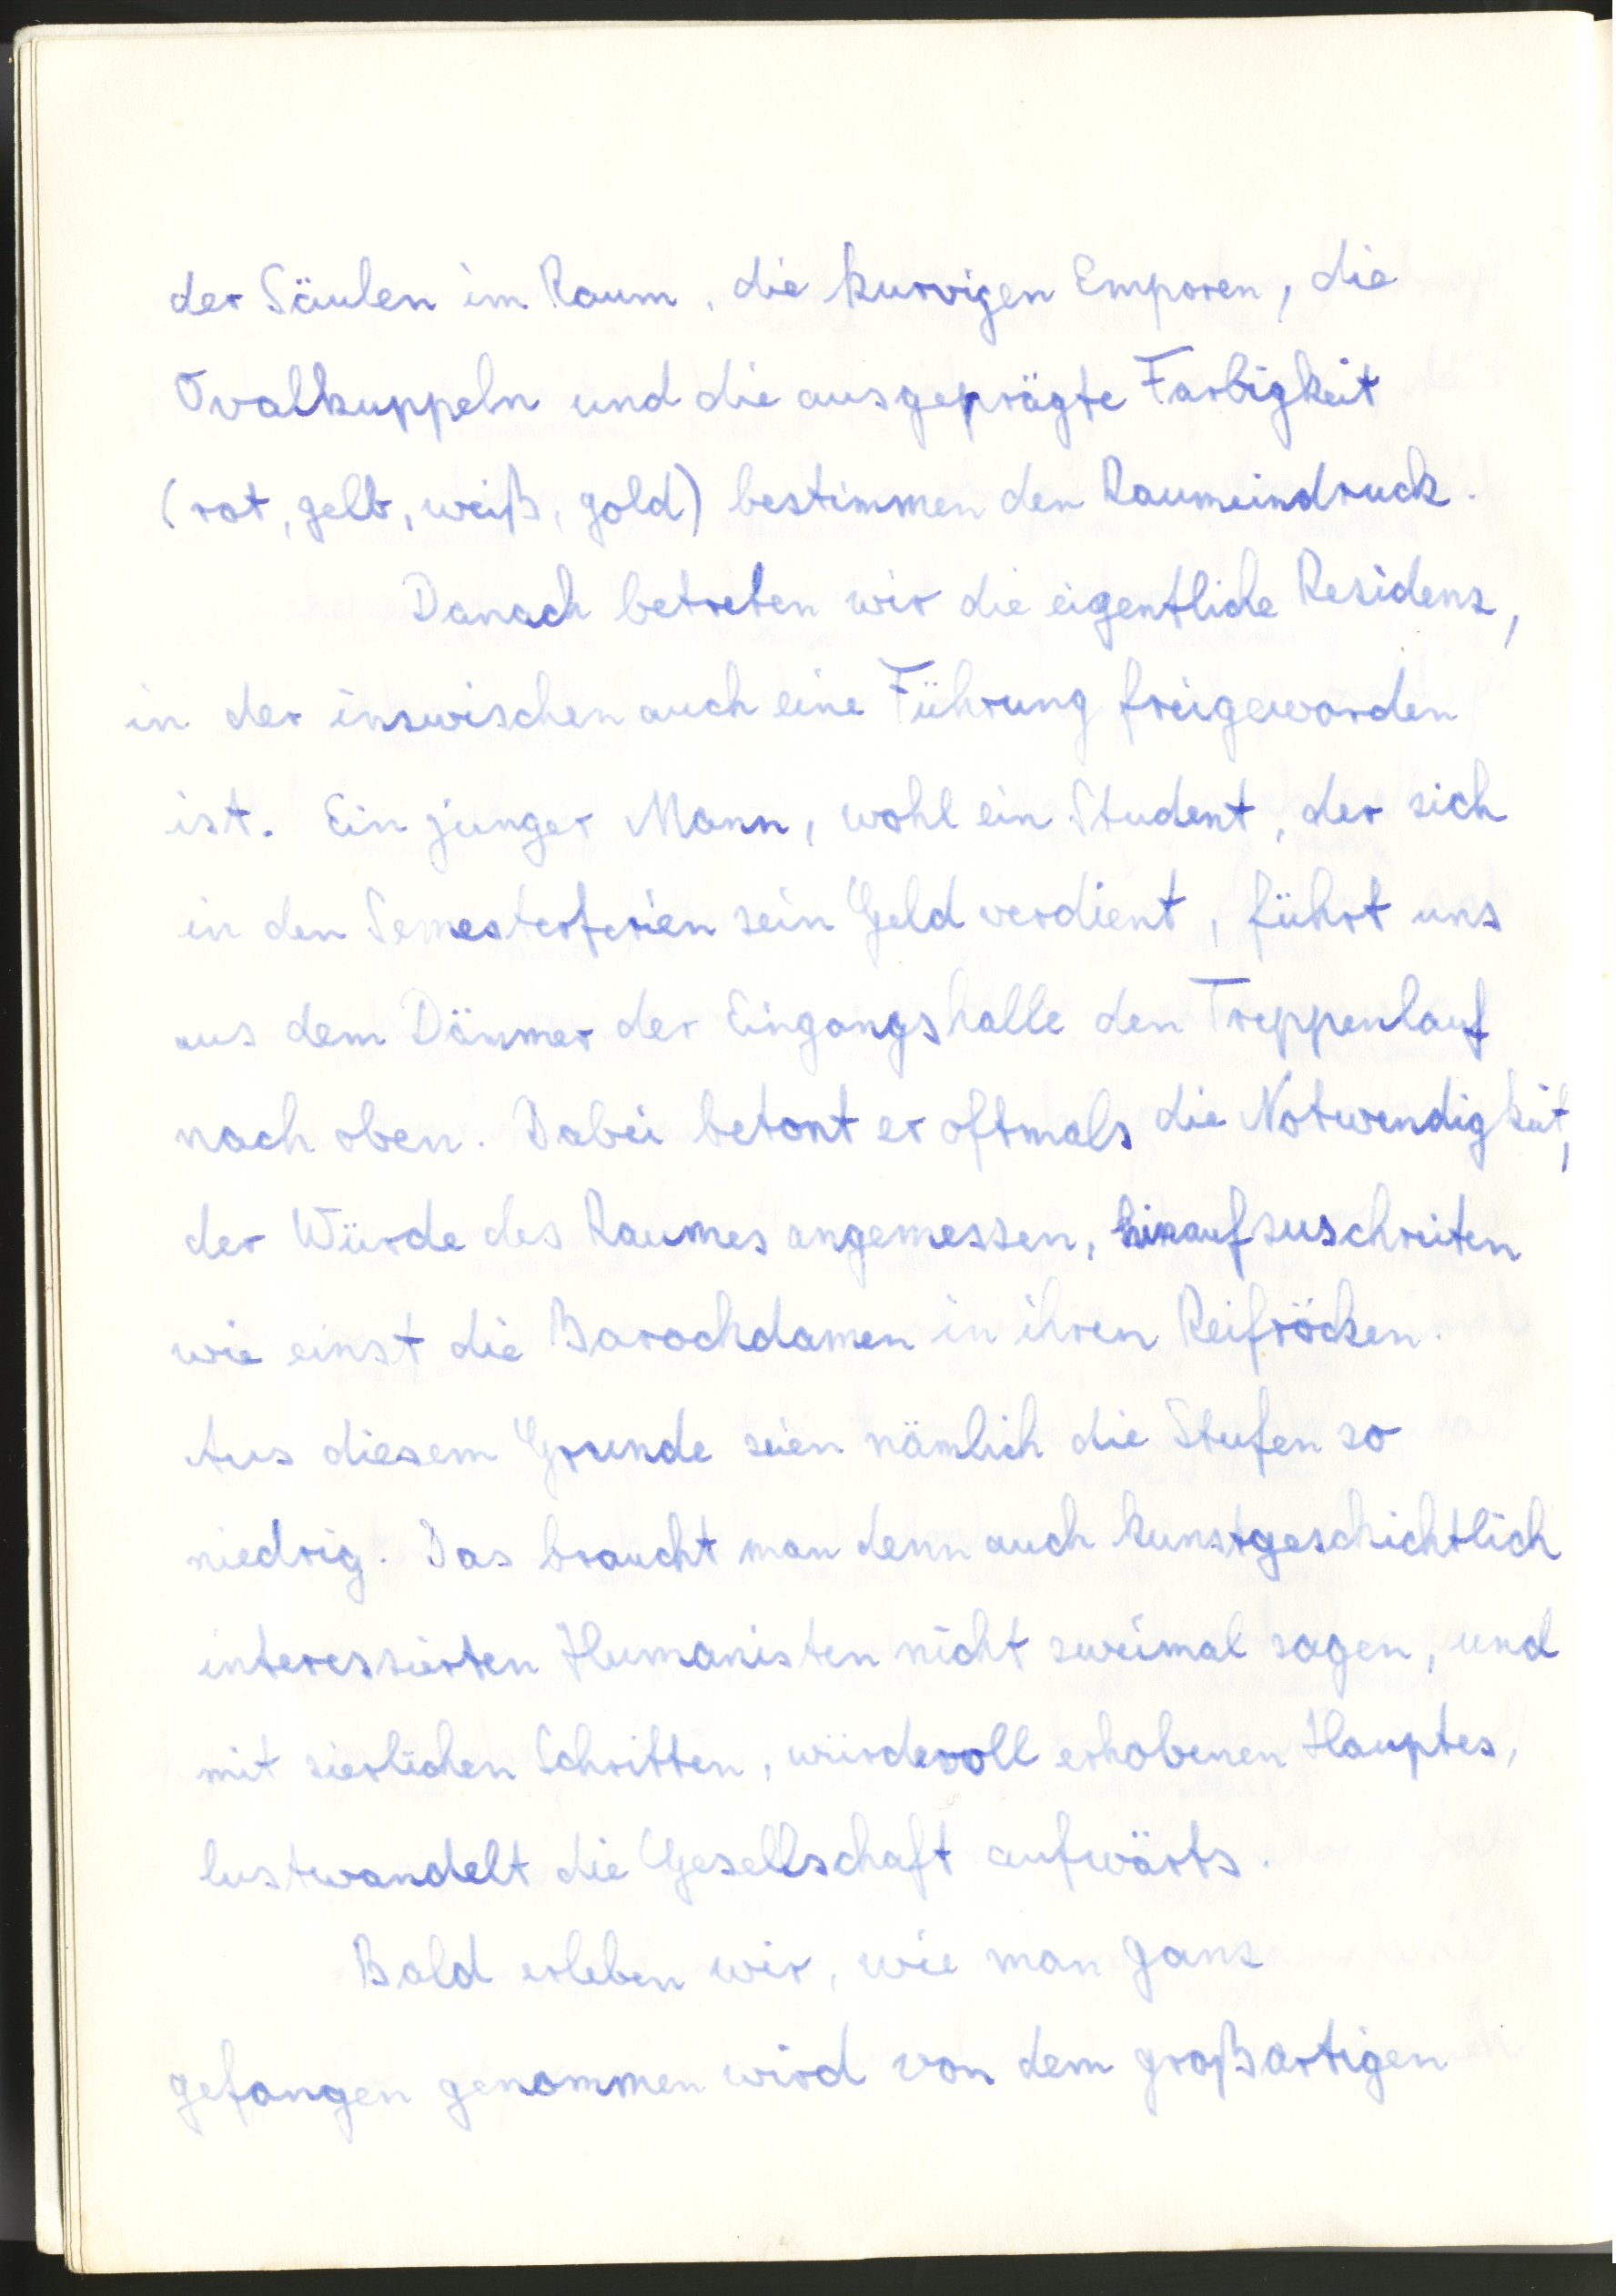 der Säulen im Raum, die kurvigen Emporen, die
Ovalkuppeln und die ausgeprägte Farbigkeit
(rot, gelb, weiß, gold) bestimmen den Raumeindruck.
Danach betreten wir die eigentliche Residenz,
in der inzwischen auch eine Führung freigeworden
ist. Ein junger Mann, wohl ein Student, der sich
in den Semesterferien sein Geld verdient, führt uns
aus dem Dämmer der Eingangshalle den Treppenlauf
nach oben. Dabei betont er oftmals die Notwendigkeit,
der Würde des Raumes angemessen, hinaufzuschreiten
wie einst die Barockdamen in ihren Reifröcken.
Aus diesem Grunde seien nämlich die Stufen so
niedrig. Das braucht man denn auch kunstgeschichtlich
interessierten Humanisten nicht zweimal sagen, und
mit zierlichen Schritten, würdevoll erhobenen Hauptes,
lustwandelt die Gesellschaft aufwärts.
Bald erleben wir, wie man ganz
gefangen genommen wird von dem großartigen